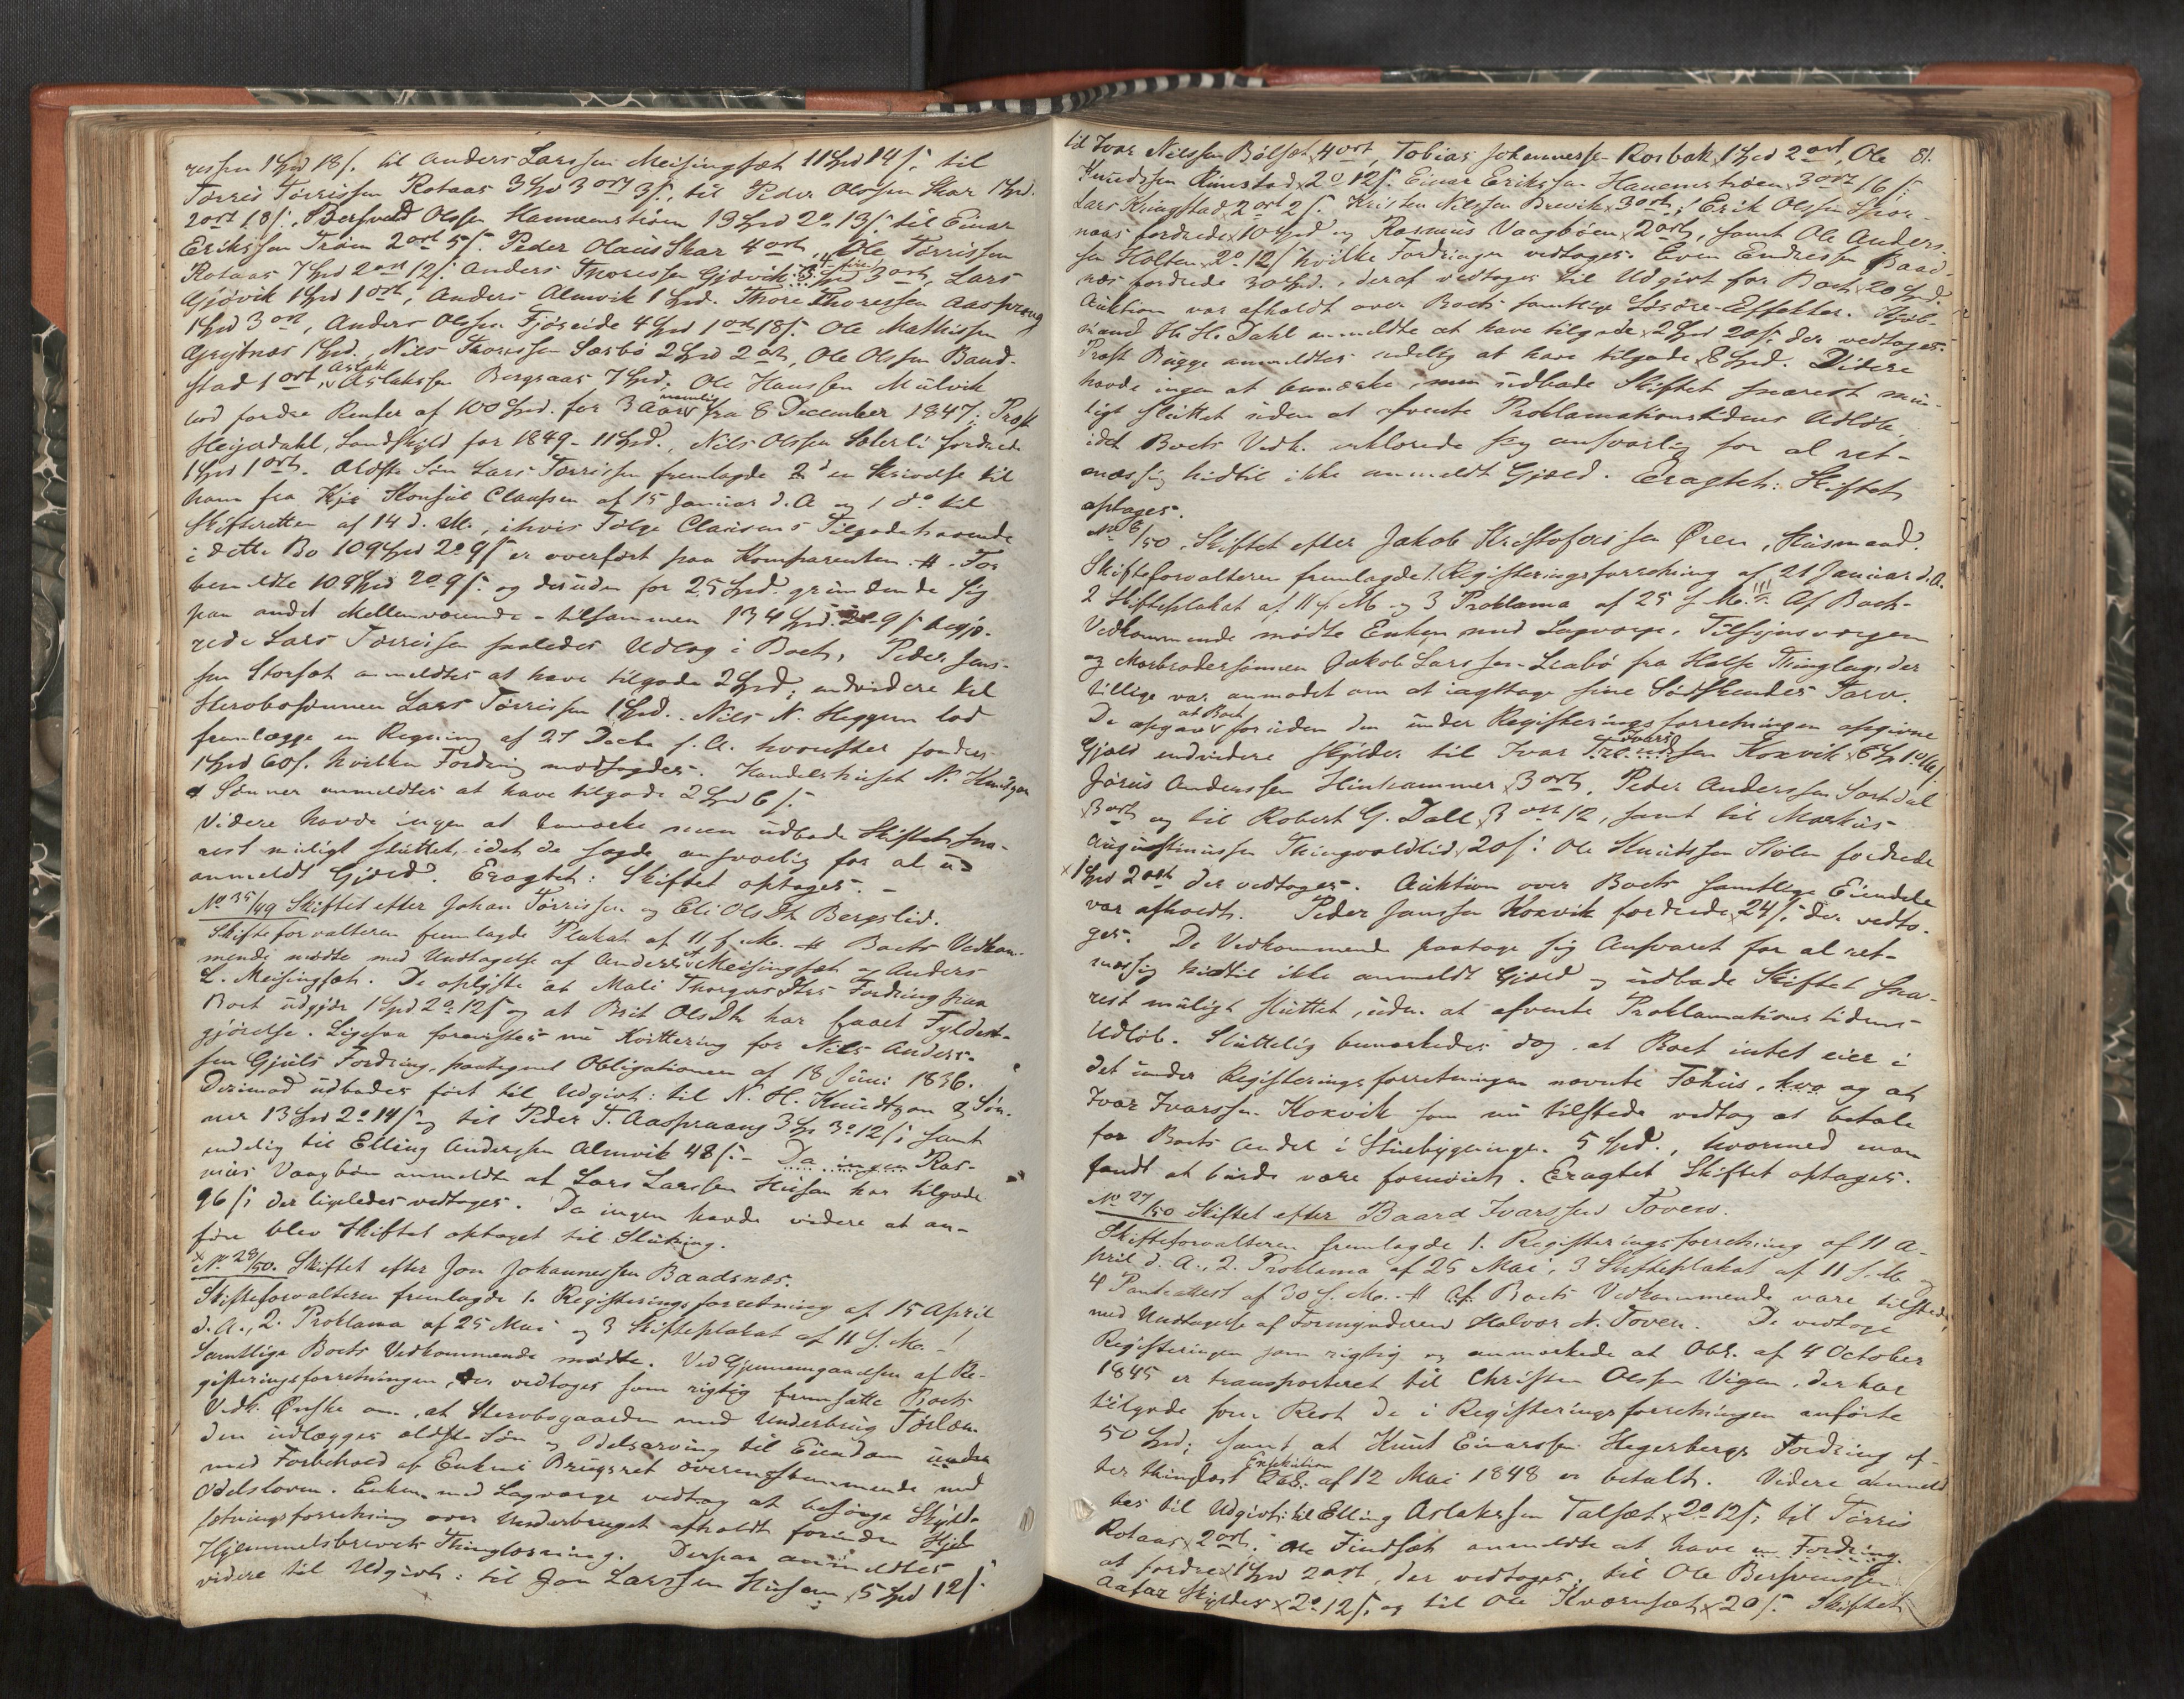 ressen 1 Spd 18 s. til Anders Larssen Meisingsæt 11 Spd 14 s. til
Torris Torrissen Rotaas 3 Spd 3 ort 3 s., til Peder Olossen Skar 1 Spd.
2 ort 18 s., Bersvend Olssen Hannemstrøen 13 Spd 2 o 13 s. til Einar
Erikssen Trøen 2 ort 5 s. Peder Olaus Skar 4 ort, Ole Torrissen
Rotaas 7 Spd 2 ort 12 s. Anders Thoressen Gjøvik 3 ort, Lars
Gjøvik 1 Spd 1 ort, Anders Almvik 1 Spd. Thore Thoressen Aasprang
1 Spd 3 ort, Anders Olssen Fjøseide 4 Spd 1 ort 18 s. Ole Mathissen
Grytnæs 1 Spd. Nils Thoressen Sæsbø 2 Spd 2 ort, Ole Olssen Baad-
stad 1 ort, Aslak Aslakssen Bergsaas 7 Spd; Ole Hanssen Mulvik
lod fordre Renter af 100 Spd. for 3 Aar nemlig fra 8 December 1847; Prost
Heyerdahl, Landskyld for 1849 - 11 Spd., Nils Olssen Sæterli fordrede
1 Spd 1 ort. Ældste Søn Lars Torrissen fremlagde 2 en Skrivelse til
ham fra Kjø Konsul Claussen af 15 Januar d. A og 1 do til
Skifteretten af 14 d. M., ihvis Følge Clausens Tilgodehavende
i dette Bo 109 Spd 2 o 9 s er overført paa Komparenten. # For
bemeldte 109 Spd 2 o 9 s. og desuden for 25 Spd. grundende sig
paa andet Mellemværende - tilsammen 134 Spd. 2 o 9 s begjæ-
rede Lars Torrissen saaledes Udlæg i Boet. Peder Jens-
sen Storsæt anmeldtes at have tilgode 2 Spd; endvidere til
Stervbosønnen Lars Torrissen 1 Spd. Nils N. Heggem lod
fremlægge en Regning af 27 Decbr f. A. hvorefter fordres
1 Spd 60 s. hvilken Fordring modsagdes. Handelshuset N. H. Knudtzon
& Sønner anmeldtes at have tilgode 2 Spd 6 s.
Videre havde ingen at bemærke men udbade Skiftet sna-
rest muligt sluttet, idet de sagde ansvarlig for al u-
anmeldt Gjæld. Eragtet: Skiftet optages. -
No 35/49 Skiftet efter Johan Torrissen og Eli Ols Dtr Bergslid.
Skifteforvalteren fremlagde Plakat af 11 f. M. # Boets Vedkom-
mende mødte med Undtagelse af Anders Meisingsæt og Anders
L. Meisingsæt. De oplyste at Mali Thorgers Dtrs Fordring paa
Boet udgjør 1 Spd 2 o 12 s og at Brit Ols Dtr har faaet Fyldest-
gjørelse. Ligesaa forevistes nu Kvittering for Nils Anders-
sen Gjuls Fordring, paategnet Obligationen af 18 Juni 1836.
Derimod udbades ført til Udgivt: til N. H. Knudtzon & Søn-
ner 13 Spd 2 o 14 s og til Peder T. Aasprang 3 Sp 3 o 12 s; samt
endelig til Elling Anderssen Almvik 48 s. - Da ingen Ras-
mus Vaagbøen anmeldte at Lars Larssen Husan har tilgode
96 s; der ligeledes vedtoges. Da ingen havde videre at an-
føre blev Skiftet optaget til Slutning.
x No 28/50. Skiftet efter Jon Johannessen Baadsnæs.
Skifteforvalteren fremlagde 1. Registeringsforretning af 15 April
d. A., 2. Proklama af 25 Mai og 3 Skifteplakat af 11 f. M. -
Samtlige Boets Vedkommende mødte. Ved Gjennemgaaelsen af Re-
gisteringsforretningen, der vedtoges som rigtig fremsatte Boets
Vedk. Ønske om, at Stervbogaarden med Underbrug Torlæn-
den udlægges ældste Søn og Odelsarving til Eiendom under
med Forbehold af Enkens Brugsret overensstemmende med
Odelsloven. Enken med Lagværge vedtog at besørge Skyld-
sætningsforretning over Underbruget afholdt forinden Skjød
Hjemmelsbrevets Thinglæsning. Derpaa anmeldtes
videre til Udgivt: til Jon Larssen Husan x 5 Spd 12 s.
til Ivar Nilssen Bølsæt x 4 ort, Tobias Johannessen Rosbak x 1 Spd 2 ort, Ole 81.
Knudssen Rimstad x 2 o 12 s. Einar Erikssen Hanemstrøen x 3 ort 16 s:
Lars Kringstad x 2 ort 2 s. Kristen Nilssen Brevik x 3 ort; Erik Olssen Spor-
næs fordrede x 10 Spd og Rasmus Vaagbøen x 2 ort, samt Ole Anders-
sen Holten x 2 o 12 s hvilke Fordringer vedtoges. Even Endressen Baad-
næs fordrede 30 Spd., deraf vedtoges til Udgivt for Boet x 20 Spd.
Auktion var afholdt over Boets samtlige Løsøre-Effekter. Kjøb-
mand H. H. Dahl anmeldte at have tilgode x 2 Spd 20 s. der vedtoges.
Prost Bugge anmeldtes endelig at have tilgode x 8 Spd. Videre
havde ingen at bemærke, men udbade Skiftet snarest mu-
ligt sluttet uden at afvente Proklamationstidens Udløb,
idet Boets Vedk. erklærede sig ansvarlig for al ret-
mæssig hidtil ikke anmeldt Gjæld. Eragtet: Skiftet
optages.
No 8/50. Skiftet efter Jakob Kristoferssen Øren, Husmand.
Skifteforvalteren fremlagde 1. Registeringsforretning af 21 Januar d. A.
2 Skifteplakat af 11 f. M og 3 Proklama af 25 f. M. Af Boets
Vedkommende mødte Enken med Lagværge, Tilsynsværgen
og Morbrodersønnen Jakob Larssen Leabø fra Halse Thinglag, der
tillige var anmodet om at iagttage sine Sødskendes Tarv.
De opgav at Boet foruden den under Registeringsforretningen opgivne
Gjæld endvidere skylder til Ivar Ivarssen Koxvik x 6 Sp 1 o 16 s.
Jørus Anderssen Hinhammer x 3 ort. Peder Anderssen Sortdal
x 3 ort og til Robert G. Dall x 3 ort 12, samt til Markus
Augustinussen Thingvoldlid x 20 s. Ole Knudssen Stølen fordrede
x 1 Spd 2 ort der vedtoges. Auktion over Boets samtlige Eiendele
var afholdt. Peder Janssen Koxvik fordrede x 24 s. der vedto-
ges. De Vedkommende paatoge sig Ansvaret for al ret-
mæssig hidtil ikke anmeldt Gjæld og udbade Skiftet sna-
rest muligt sluttet, uden at afvente Proklamationstidens
Udløb. Sluttelig bemærkedes dog, at Boet intet eier i
det under Registeringsforretningen nævnte Føhus, hvo og at
Ivar Ivarssen Koxvik som nu tilstede vedtog at betale
for Boets Andel i Stuebygningen 5 Spd., hvormed man
fandt at burde være fornøiet. Eragtet Skiftet optages.
No 27/50 Skiftet efter Baard Ivarssen Toven.
Skifteforvalteren fremlagde 1. Registeringsforretning af 11 A-
pril d. A., 2. Proklama af 25 Mai, 3 Skifteplakat af 11 f. M og
4 Panteattest af 30 f. M. # Af Boets Vedkommende vare tilstede,
med Undtagelse af Formynderen Halvor N. Toven. De vedtoge
Registeringen som rigtig og anmærkede at Obl. af 4 October
1845 er transporteret til Christen Olssen Vigen, der har
tilgode som Rest de i Registeringsforretningen anførte
50 Spd; samt at Knut Einarssen Hegerbergs Fordring ef-
ter thinglæst Exekution Obl. af 12 Mai 1848 er betalt. Videre anmeld-
tes til Udgivt: til Elling Aslakssen Talsæt x 2 o 12 s; til Torris
Rotaas x 2 ort. Ole Findsæt anmeldte at have en Fordring
at fordre x 1 Spd 2 ort, der vedtoges; til Ole Bersvenssen
Aafar skyldes x 2 o 12 s, og til Ole Kvernsæt x 20 s. Skiftet